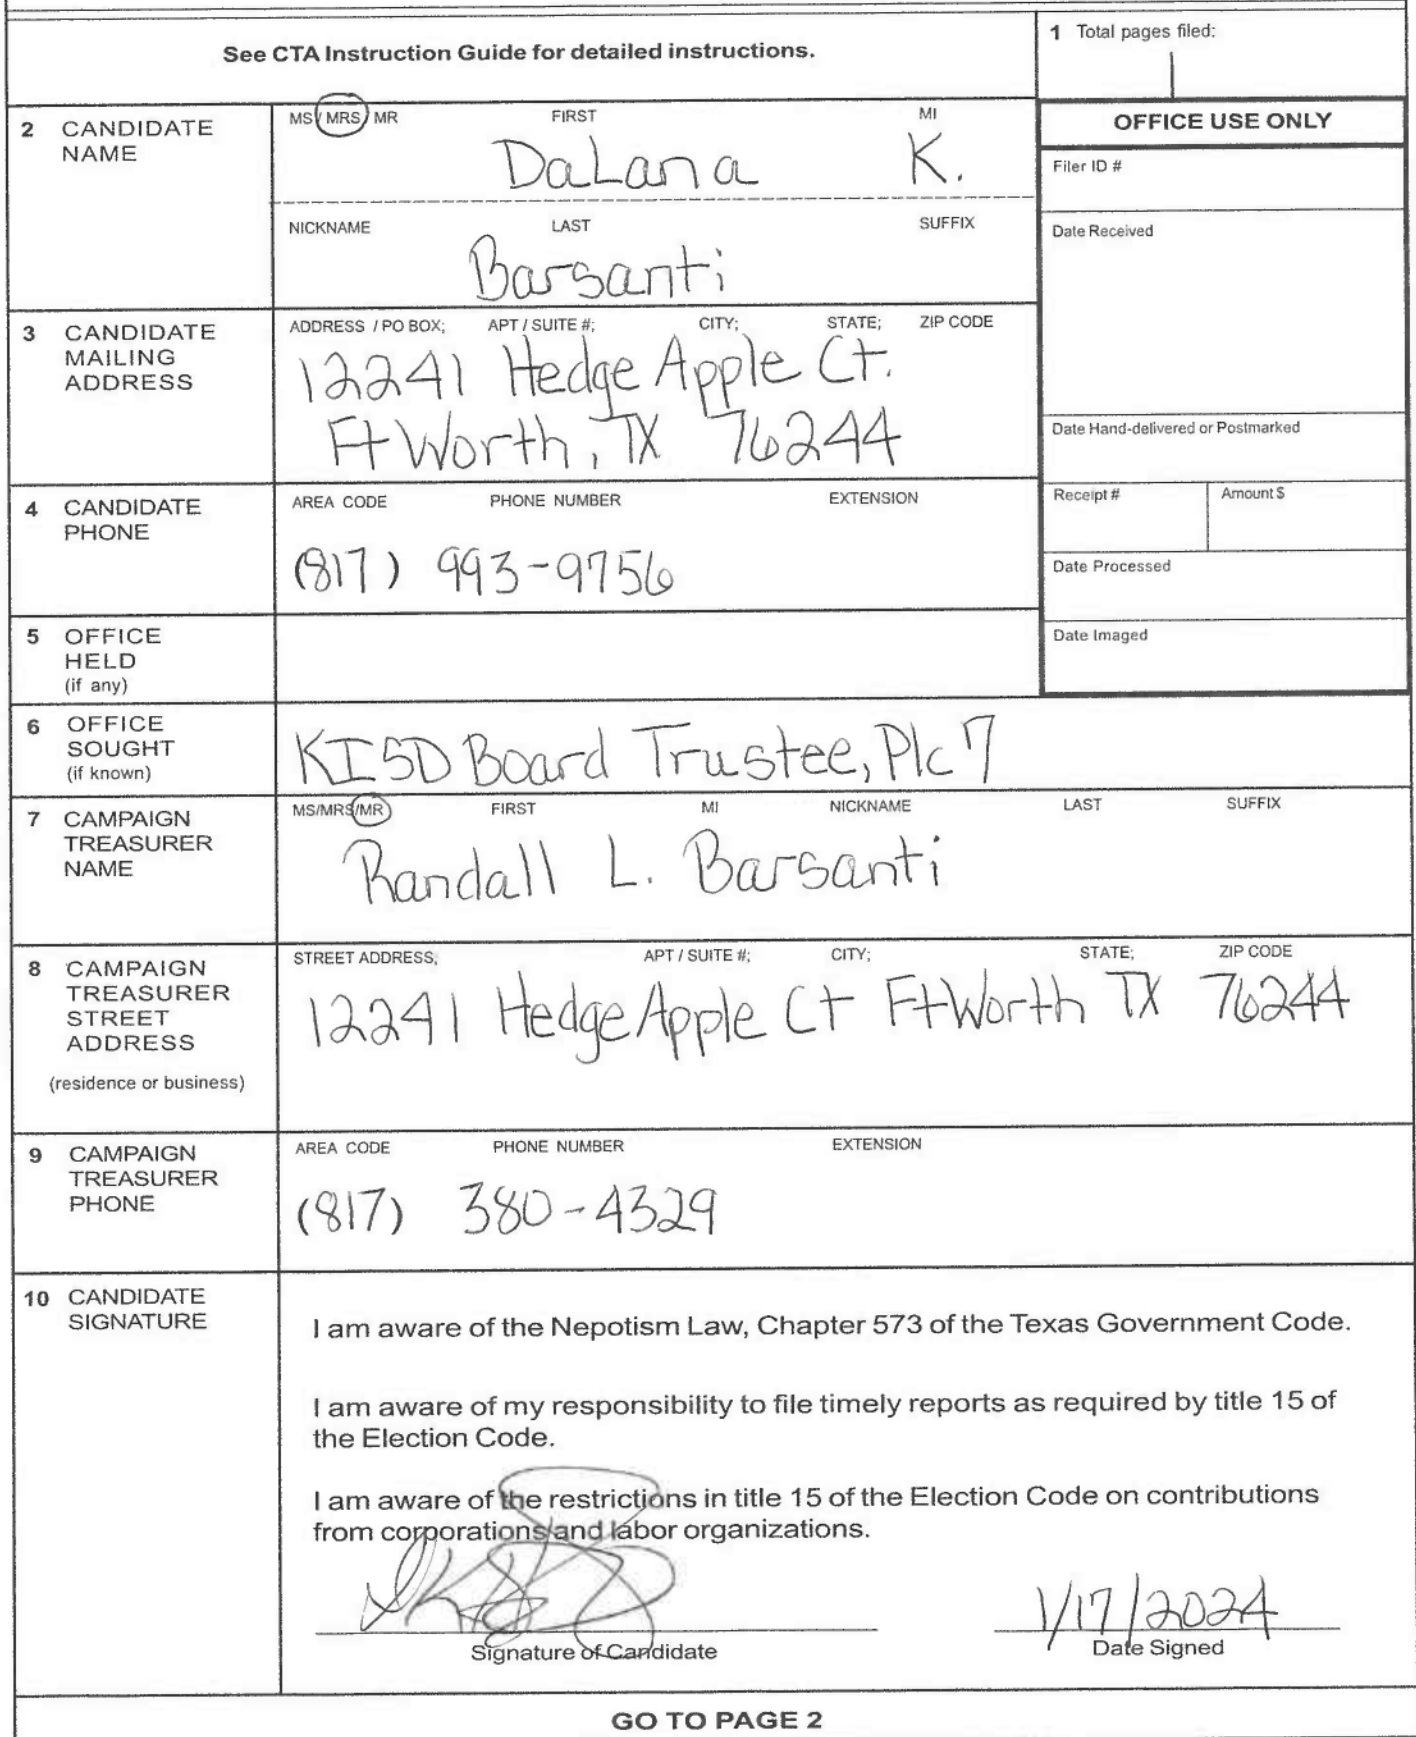 See CTA Instruction Guide for detailed instructions.
1 Total pages filed:
1
2 CANDIDATE NAME
MS / MRS / MR FIRST MI
DaLana K.
NICKNAME LAST SUFFIX
Barsanti
OFFICE USE ONLY
Filer ID #
Date Received
3 CANDIDATE MAILING ADDRESS
ADDRESS / PO BOX; APT / SUITE #; CITY; STATE; ZIP CODE
12241 Hedge Apple Ct.
Ft Worth, TX 76244
Date Hand-delivered or Postmarked
4 CANDIDATE PHONE
AREA CODE PHONE NUMBER EXTENSION
(817) 993-9756
Receipt # Amount $
Date Processed
5 OFFICE HELD (if any)
Date Imaged
6 OFFICE SOUGHT (if known)
KISD Board Trustee, Plc 7
7 CAMPAIGN TREASURER NAME
MS/MRS/MR FIRST MI NICKNAME LAST SUFFIX
Randall L. Barsanti
8 CAMPAIGN TREASURER STREET ADDRESS (residence or business)
STREET ADDRESS; APT / SUITE #; CITY; STATE; ZIP CODE
12241 Hedge Apple Ct Ft Worth TX 76244
9 CAMPAIGN TREASURER PHONE
AREA CODE PHONE NUMBER EXTENSION
(817) 380-4329
10 CANDIDATE SIGNATURE
I am aware of the Nepotism Law, Chapter 573 of the Texas Government Code.
I am aware of my responsibility to file timely reports as required by title 15 of
the Election Code.
I am aware of the restrictions in title 15 of the Election Code on contributions
from corporations and labor organizations.
1/17/2024
Signature of Candidate Date Signed
GO TO PAGE 2